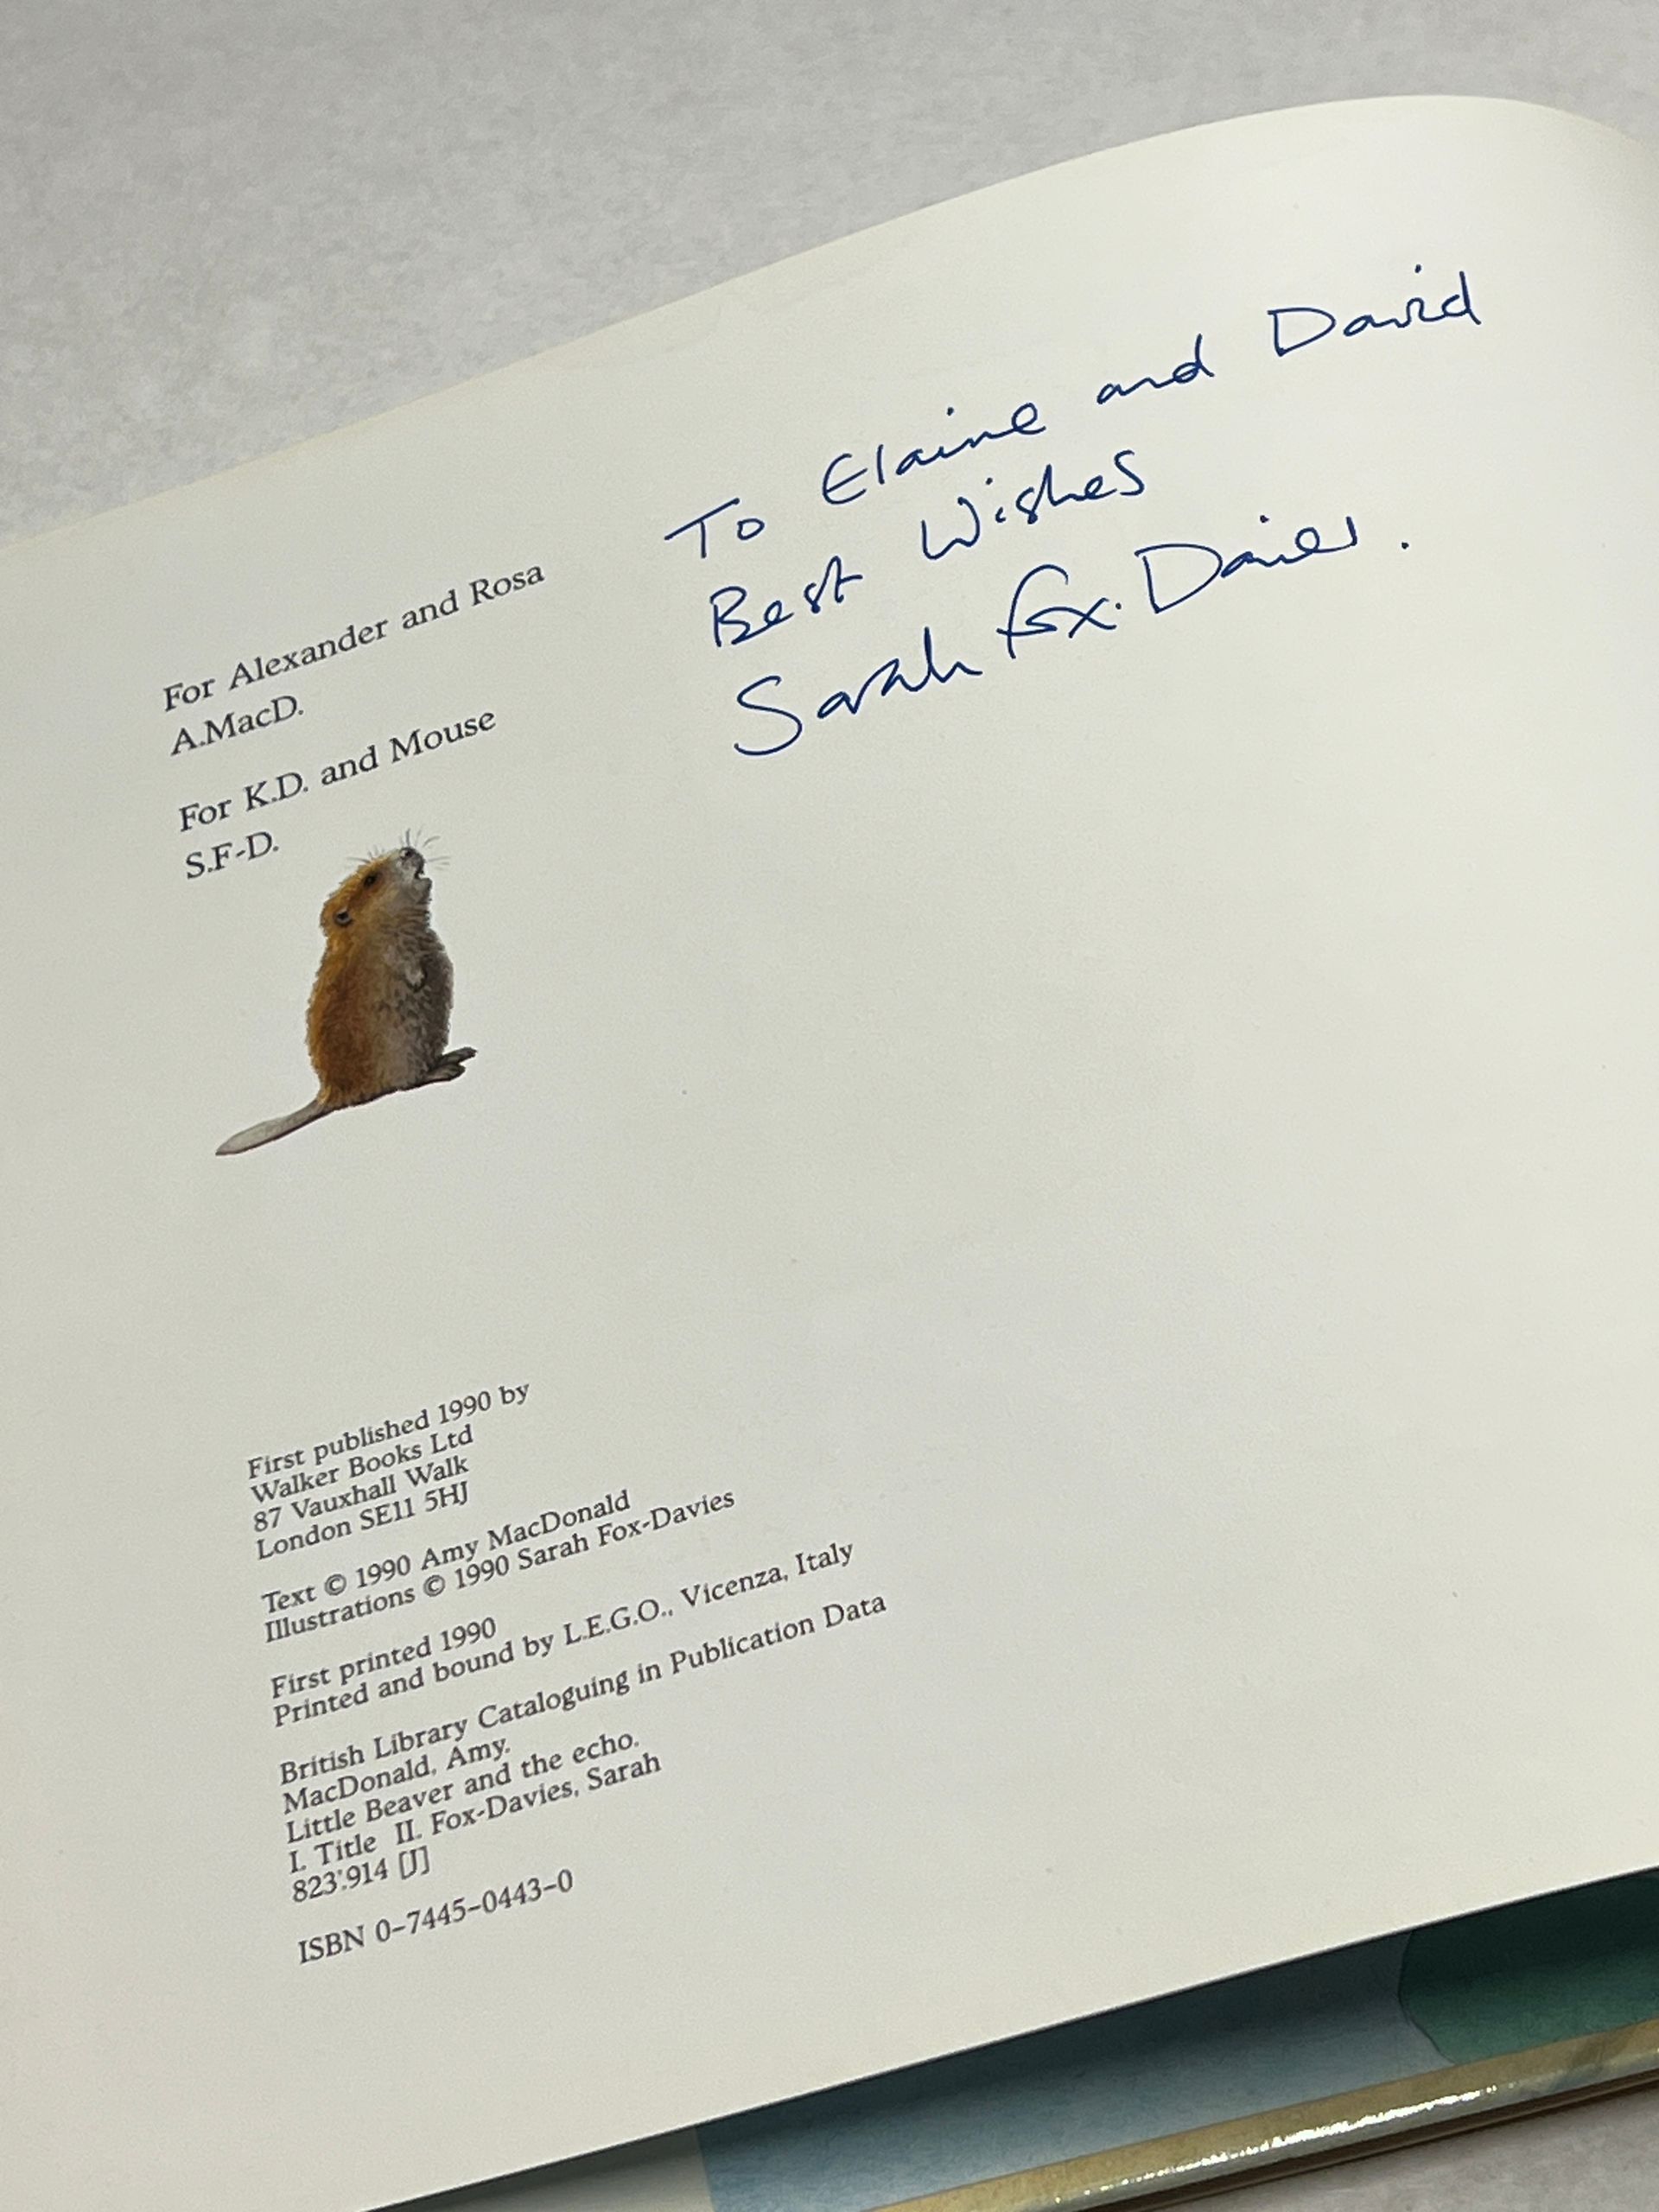 To Elaine and David
Best Wishes
Sarah Fox-Davies.
For Alexander and Rosa
A.MacD.
For K.D. and Mouse
S.F-D.
First published 1990 by
Walker Books Ltd
87 Vauxhall Walk
London SE11 5HJ
Text © 1990 Amy MacDonald
Illustrations © 1990 Sarah Fox-Davies
First printed 1990
Printed and bound by L.E.G.O., Vicenza, Italy
British Library Cataloguing in Publication Data
MacDonald, Amy.
Little Beaver and the echo.
I. Title II. Fox-Davies, Sarah
823'.914 [J]
ISBN 0-7445-0443-0